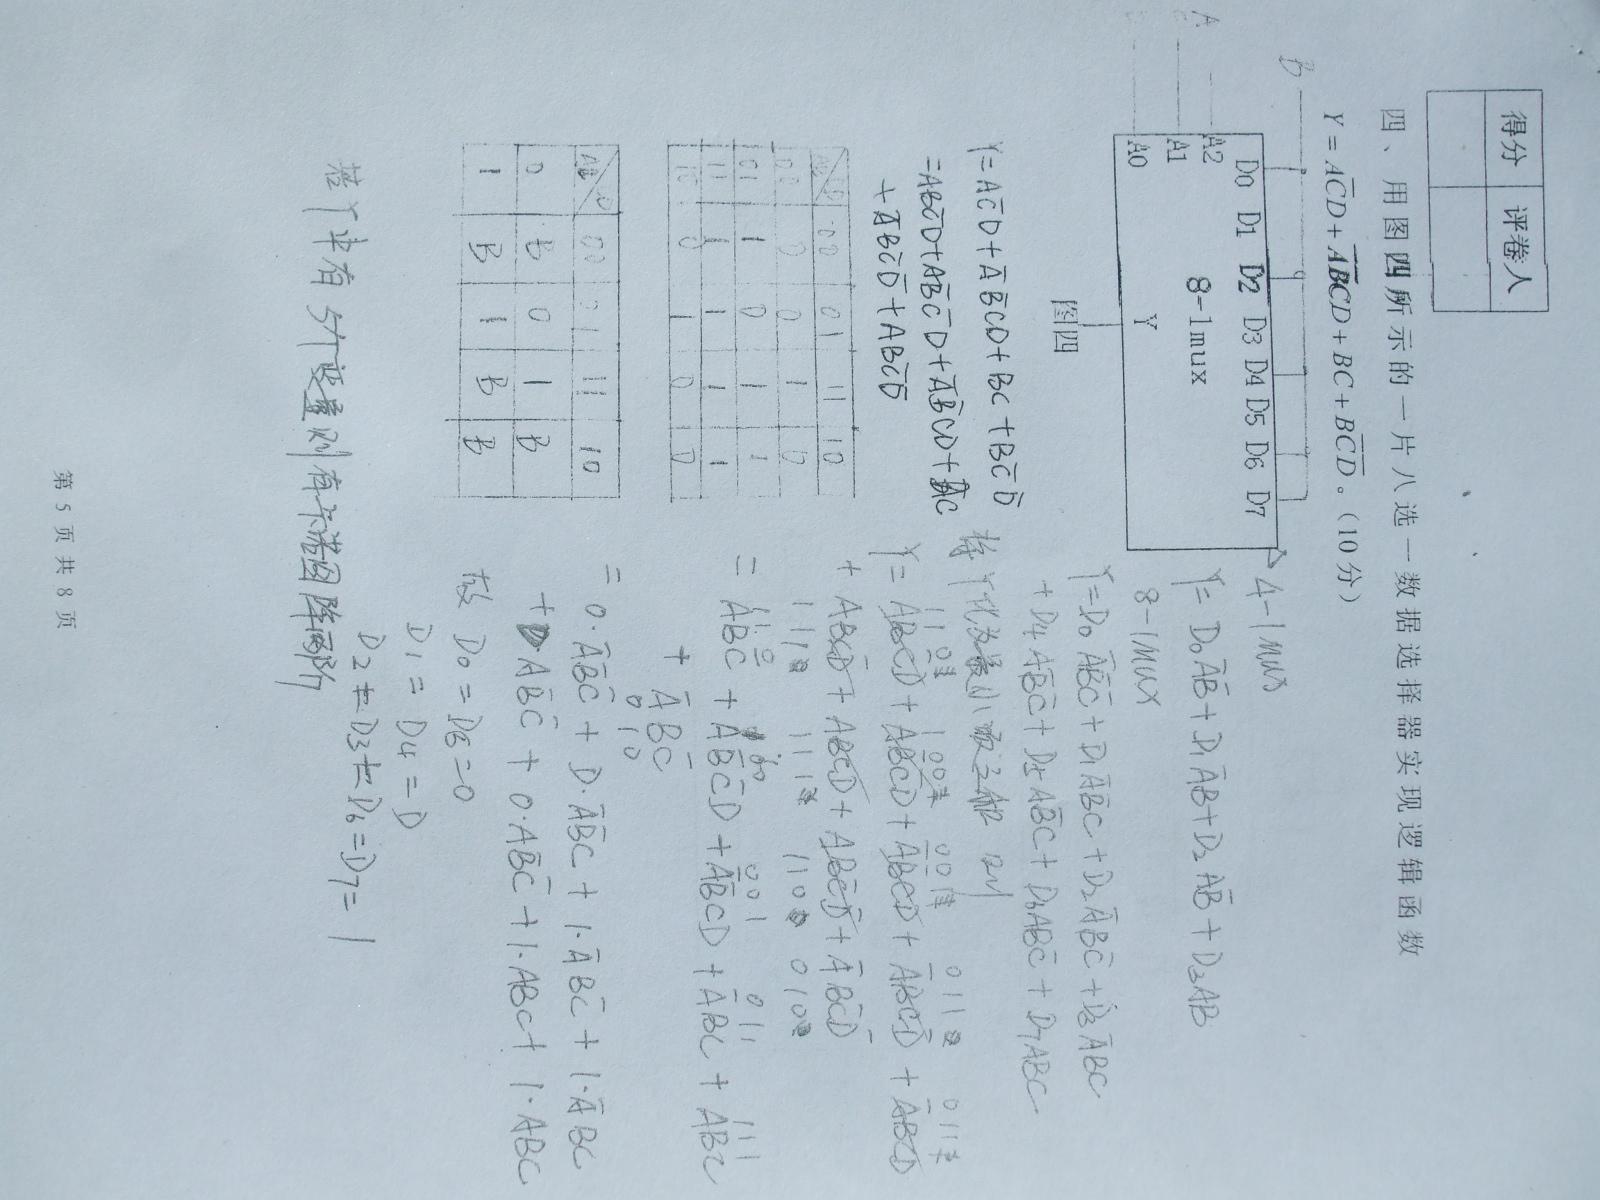 得分 评卷人
四、用图四所示的一片八选一数据选择器实现逻辑函数
Y = AC̅D + A̅B̅CD + BC + BC̅D̅。(10分)
B
D0 D1 D2 D3 D4 D5 D6 D7
A
A2
A1
A0
8-1mux
Y
图四
Y=AC̅D+A̅B̅CD+BC+BC̅D̅
=ABC̅D+AB̅C̅D+A̅B̅CD+BC
+A̅BC̅D̅+ABC̅D̅
00 01 11 10
00 0 0 1 0
01 1 0 1 1
11 1 1 1 1
10 0 1 0 0
00 01 11 10
0 B 0 1 B
1 B 1 B B
若Y中有5个变量则有卡诺图降两阶
4-1mux
Y= D0A̅B̅+D1A̅B+D2AB̅+D3AB
8-1mux
Y=D0A̅B̅C̅+D1A̅B̅C+D2A̅BC̅+D3A̅BC
+D4AB̅C̅+D5AB̅C+D6ABC̅+D7ABC
将Y化为最小项之和 则
110 100 001 011 011
Y=ABC̅D+AB̅C̅D+A̅B̅CD+A̅BCD̅+A̅BCD
+ABCD̅+ABCD+ABC̅D̅+A̅BC̅D̅
111 111 110 010
= ABC̅+AB̅C̅D+A̅B̅CD+A̅BC+ABC
110 100 001 011 111
+ A̅BC̅
010
= 0·A̅B̅C̅+D·A̅B̅C+1·A̅BC̅+1·A̅BC
+DAB̅C̅+0·AB̅C+1·ABC̅+1·ABC
故 D0=D5=0
D1=D4=D
D2=D3=D6=D7=1
第 5 页 共 8 页